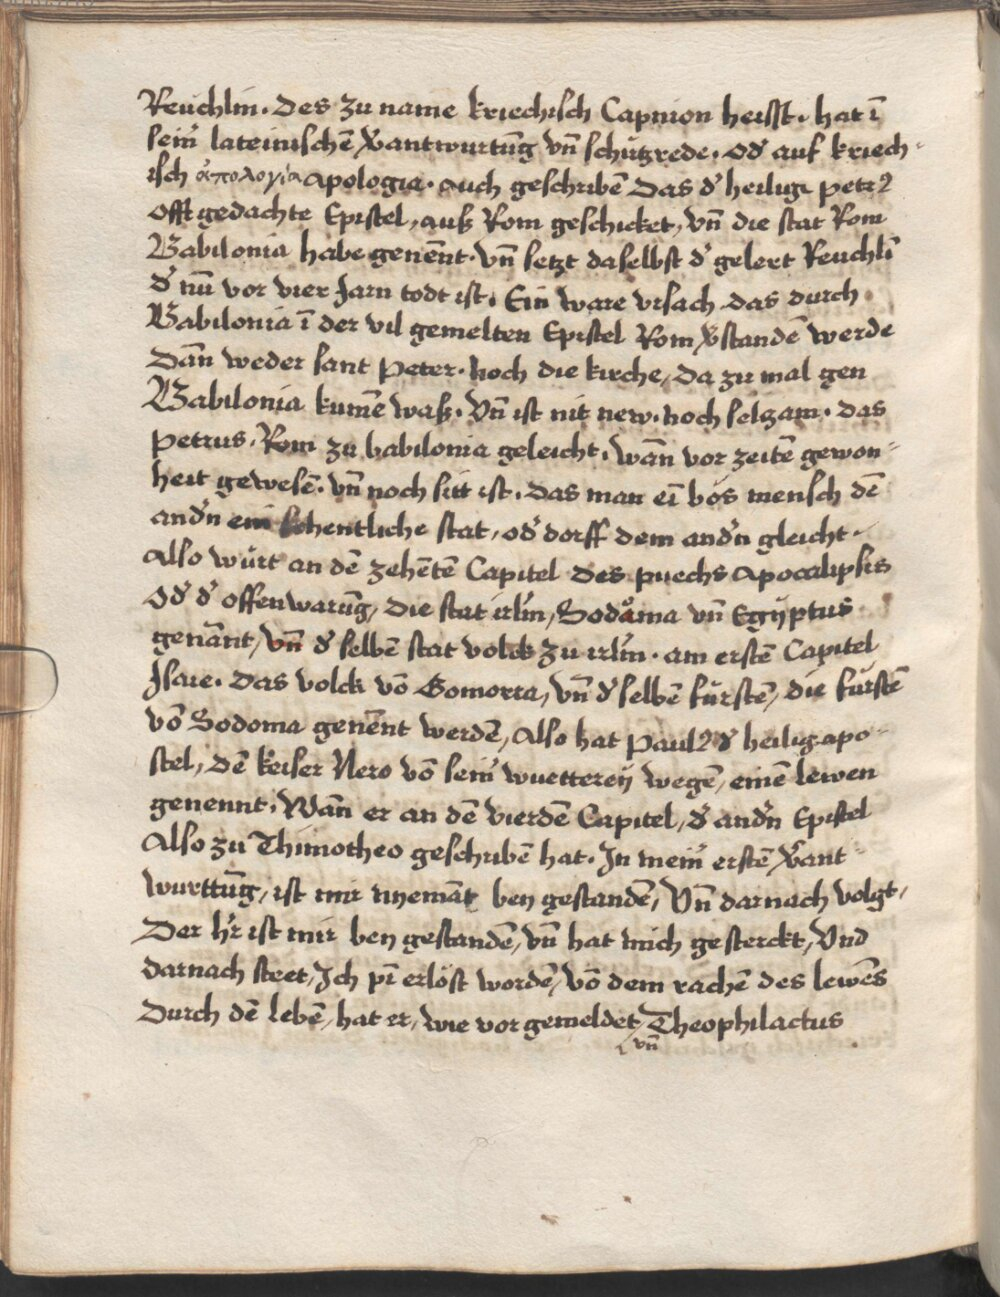 Reuchlin. Des zu name kriechisch Capnion heisst. hat ī
seinˀ lateinischē v̄antwurtūg vn̄ schutzrede. odˀ auf kriech-
isch ἀπολογία apologia. auch geschribē Das dˀ heilige petrꝰ
offt gedachte Epistel, auß Rom geschicket, vn̄ die stat Rom
Babilonia habe genēnt. vn̄ setzt daselbst dˀ gelert Reuchlī
dˀ nū vor vier Jarn todt ist. Ein ware vrsach das durch
Babilonia ī der vil gemelten Epistel Rom v̄standē werde
Dān weder sant Peter. noch die kirche, da zu mal gen
Babilonia kumē waß. Vn̄ ist nit new. noch selzam. das
Petrus. Rom zu babilonia geleicht. wān vor zeitē gewon-
heit gewesē. vn̄ noch sitt ist. das man eī bös mensch dē
andˀn ein schentliche stat, odˀ dorff dem andˀn gleicht.
Also würt an dē zehētē Capitel des puechs Apocalipsis
Odˀ dˀ offenwarūg, die stat irlm̄, Sodoma vn̄ Egÿptus
genānt, vn̄ dˀ selbē stat volck zu irlm̄. am erstē Capitel
Isaie. das volck vō Gomorra, vn̄ dˀ selbē fürstē, die fürstē
vō Sodoma genēnt werdē, Also hat Paulꝰ dˀ heilig apo-
stel, dē keiser Nero vō seinˀ wuetterey wegē, einē lewen
genennt. Wān er an dē vierdē Capitel, dˀ andˀn Epistel
Also zu Thimotheo geschribē hat. In meinˀ erstē v̄ant-
wurttūg, ist mir nyemāt bey gestandē, Vn̄ darnach volgt,
Der hˀr ist mir bey gestandē, vn̄ hat mich gesterckt, Vnd
darnach steet, Ich pī erlöst wordē, vō dem rachē des lewēs
Durch dē lebē, hat er, wie vor gemeldet, Theophilactus
vn̄